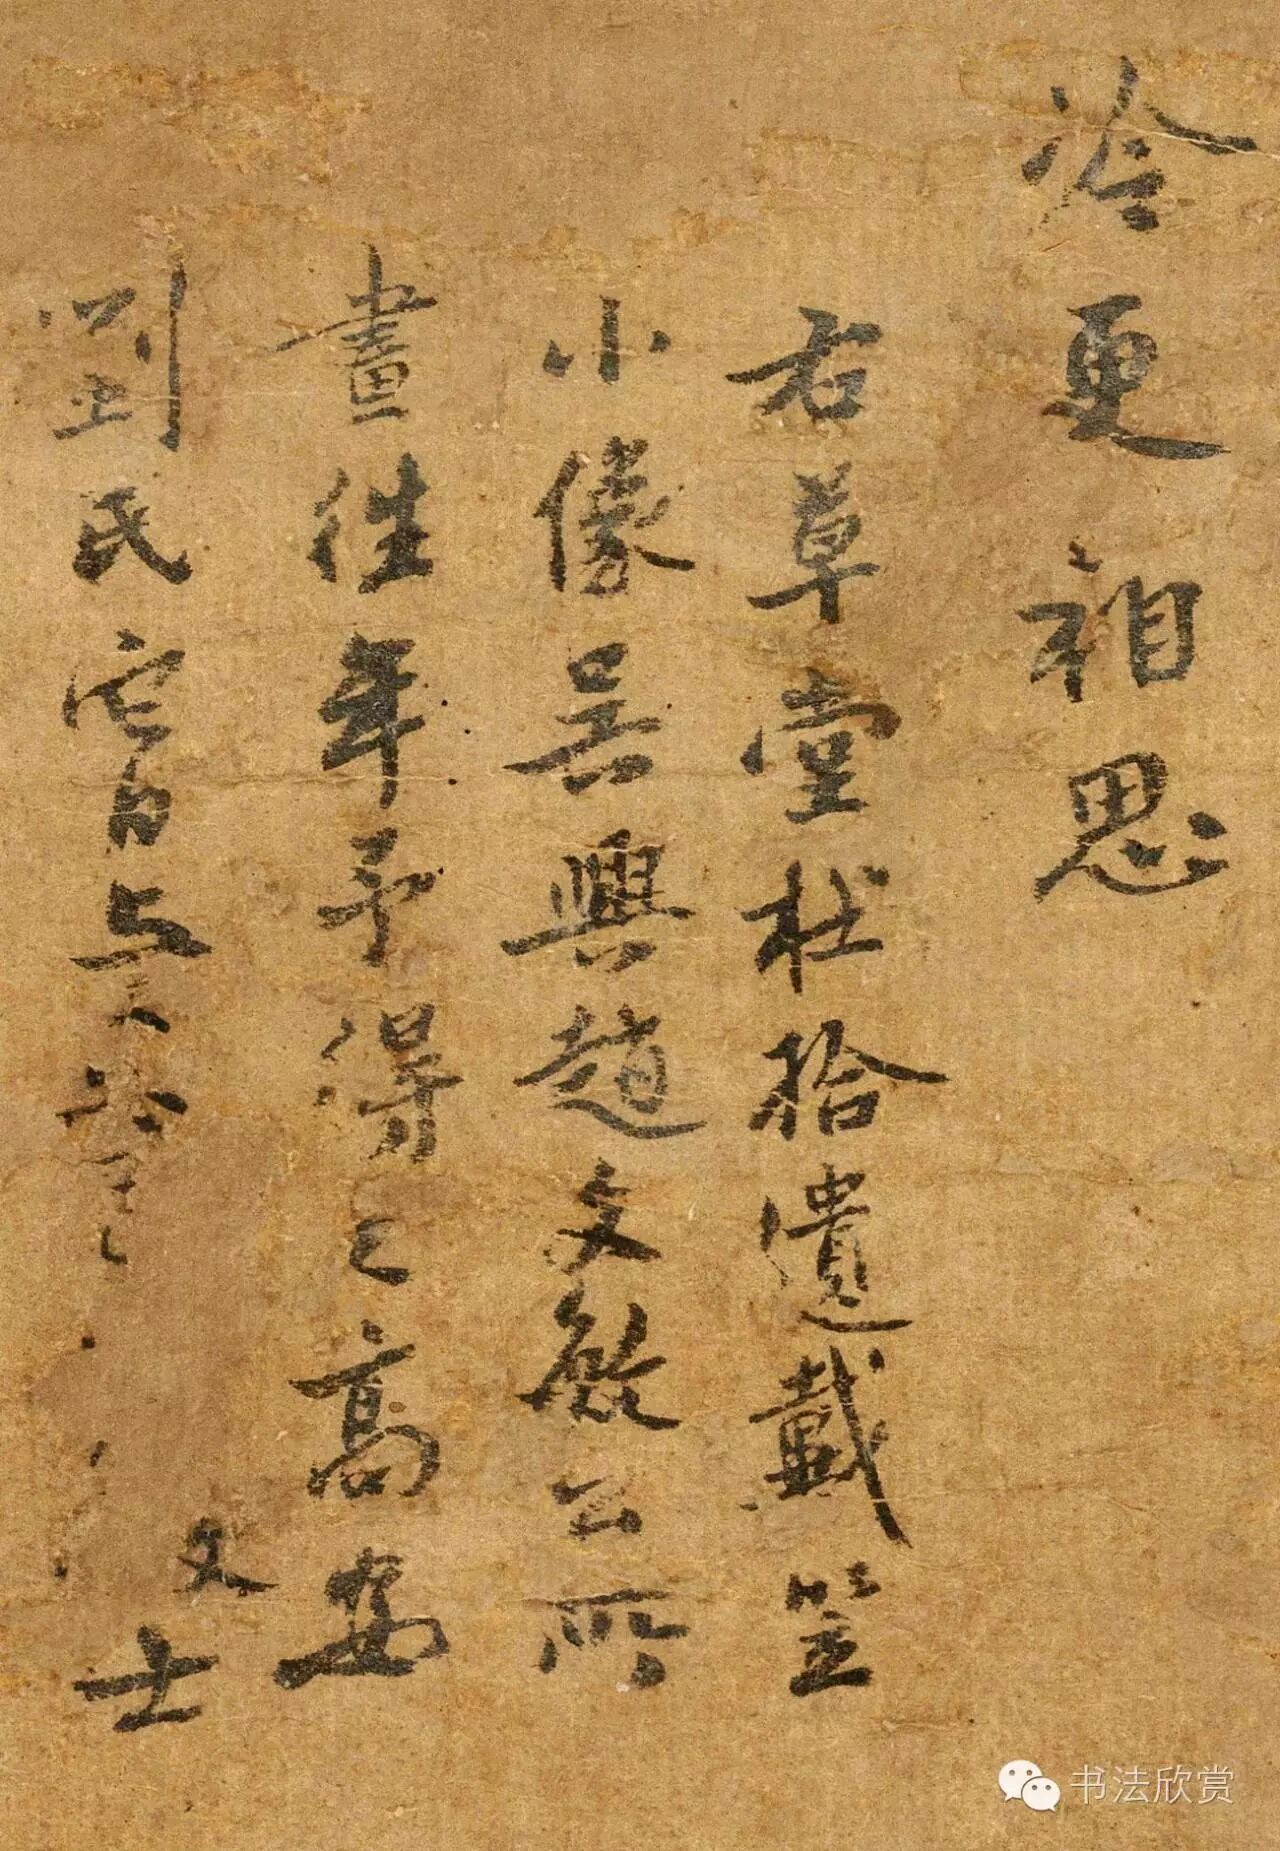 冷更相思
右草堂杜拾遺戴笠
小像吳興趙文敏公所
畫往年予得之高安
劉氏宦自與文士
书法欣赏